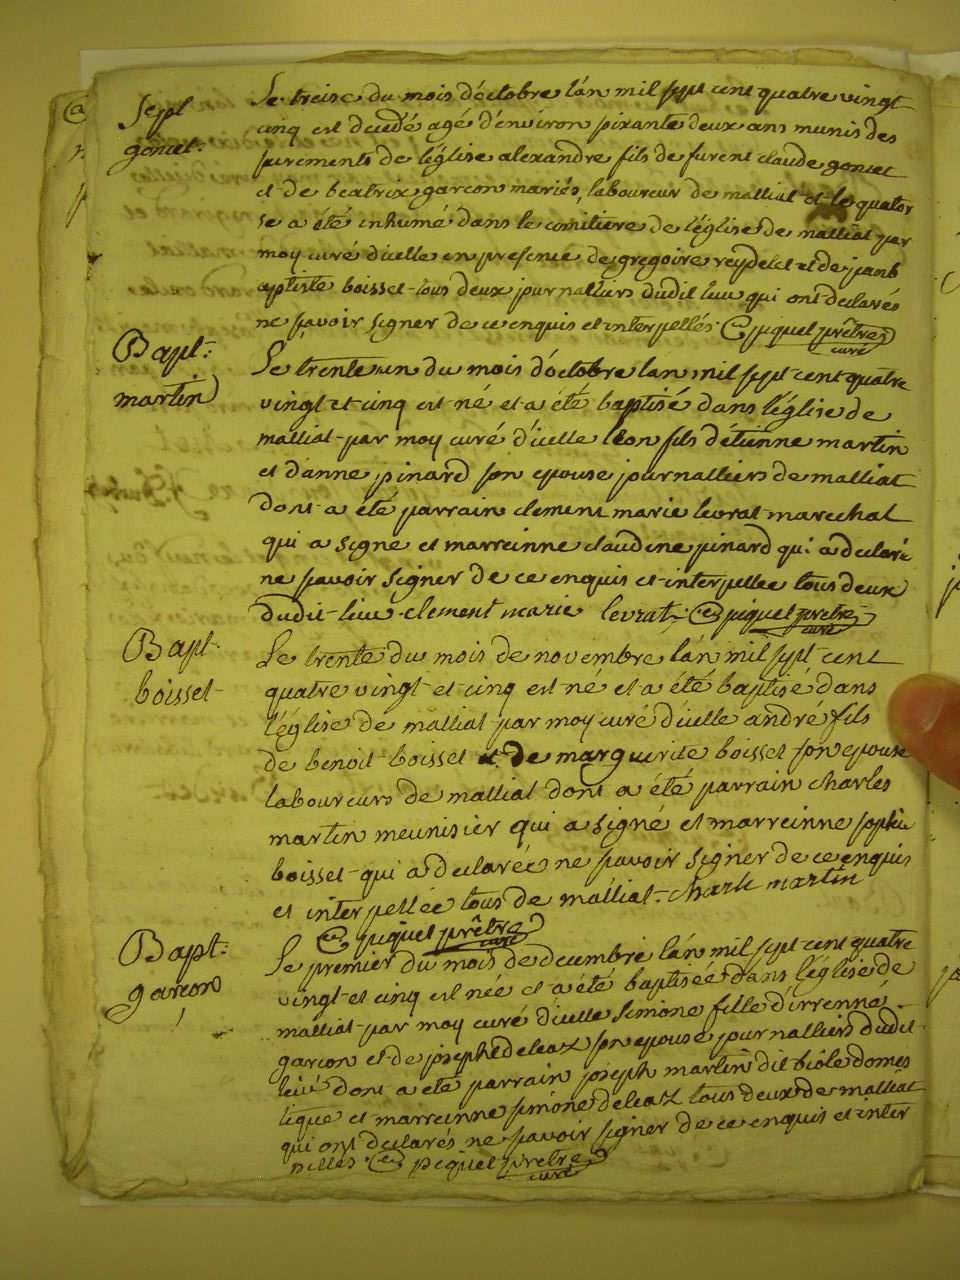 Sept
goncet:
Le treise du mois d'octobre l'an mil sept cent quatre vingt
cinq est decedé agé d'environ soixante deux ans munis des
sacrements de l'église alexandre fils de furent claude goncet
et de beatrix garcon mariés, laboureur de malliat et le quator
se a été inhumé dans le cemitiere de l'église de malliat par
moy curé d'icelle en presence de gregoire reydelet et de jeanb
aptiste boisset tous deux journalliers dudit lieu qui ont declarés
ne savoir signer de ce enquis et interpellés. C piquet prêtre
curé
Bapt:
martin
Le trente un du mois d'octobre l'an mil sept cent quatre
vingt et cinq est né et a été baptisé dans l'église de
malliat par moy curé d'icelle leon fils d'étienne martin
et d'anne pinard son epouse journalliers de malliat
dont a été parrain clement marie levrat marechal
qui a signé et marreinne claudine pinard qui a declaré
ne savoir signer de ce enquis et interpellée tous deux
dudit lieu. clement marie levrat. C piquet prêtre
curé
Bapt.
boisset
Le trente du mois de novembre l'an mil sept cent
quatre vingt et cinq est né et a été baptisé dans
l'église de malliat par moy curé d'icelle andré fils
de benoit boisset et de marguerite boisset son epouse
laboureurs de malliat dont a été parrain charles
martin meunisier qui a signé et marreinne sophie
boisset qui a declarée ne savoir signer de ce enquis
et interpellée tous de malliat. charle martin
C piquet prêtre
curé
Bapt:
garcon
Le premier du mois de decembre l'an mil sept cent quatre
vingt et cinq est née et a été baptisée dans l'église de
malliat par moy curé d'icelle simone fille d'irrenné
garcon et de josephte deleaz son epouse journalliers dudit
lieu dont a été parrain joseph martin dit biole domes
tique et marreinne simone deleaz tous deux de malliat
qui ont declarés ne savoir signer de ce enquis et inter
pellés C piquet prêtre
curé